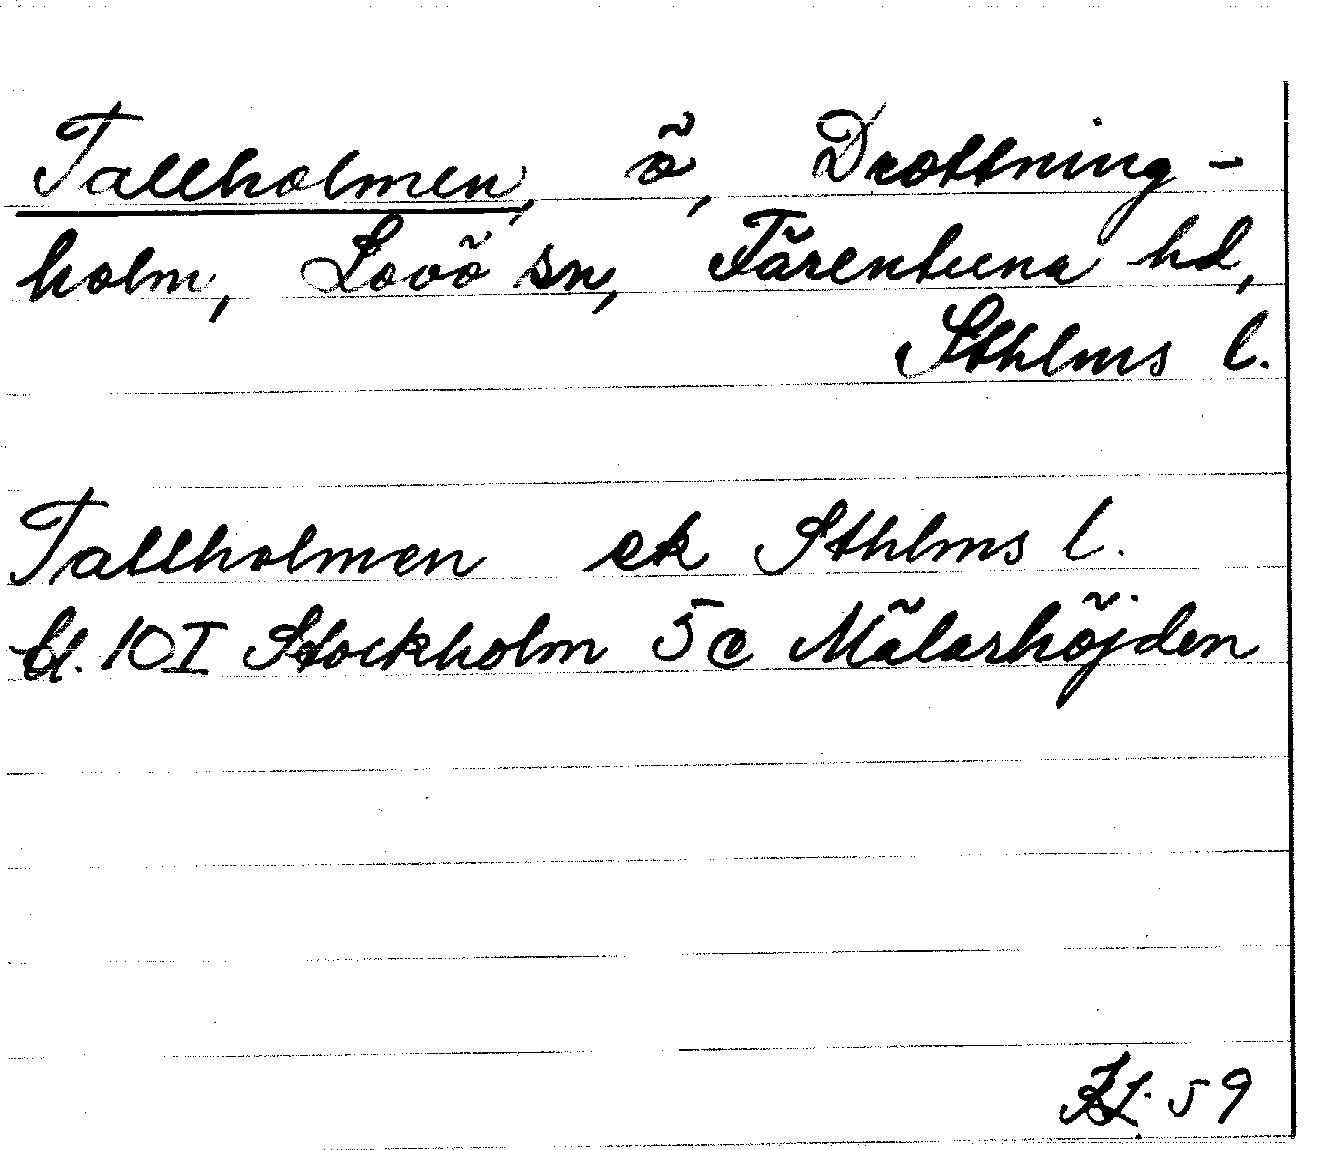 Tallholmen, ö, Drottning-
holm, Lovö sn, Färentuna hd,
Sthlms l.
Tallholmen ek Sthlms l.
bl. 10 I Stockholm 5c Mälarhöjden
59